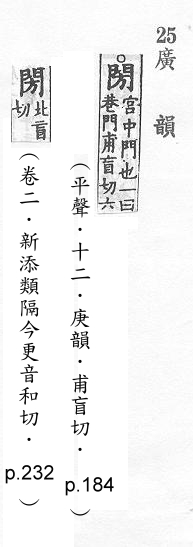 25廣韻
閍宮中門也一曰巷門甫盲切六
（平聲．十二．庚韻．甫盲切． p.184）
閍北盲切
（卷二．新添類隔今更音和切． p.232）